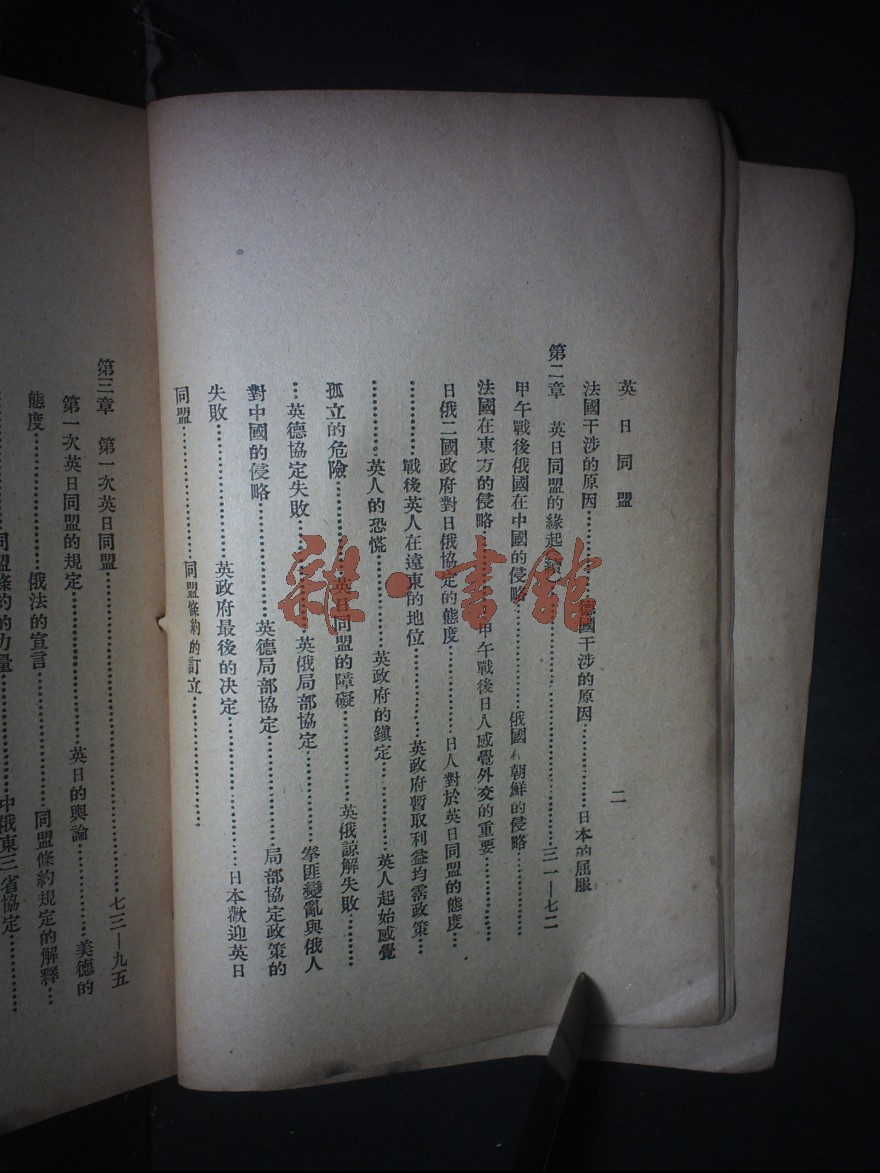 英日同盟
二
法國干涉的原因…………德國干涉的原因…………日本的屈服
第二章 英日同盟的緣起…………三一—七二
甲午戰後俄國在中國的侵略…………俄國 朝鮮的侵略…………
法國在東方的侵略…………甲午戰後日人感覺外交的重要…………
日俄二國政府對日俄協定的態度…………日人對於英日同盟的態度…
…………戰後英人在遠東的地位…………英政府暫取利益均霑政策…
…………英人的恐慌…………英政府的鎭定…………英人起始感覺
孤立的危險…………英日同盟的障礙…………英俄諒解失敗…………
…英德協定失敗…………英俄局部協定…………拳匪變亂與俄人
對中國的侵略…………英德局部協定…………局部協定政策的
失敗…………英政府最後的決定…………日本歡迎英日
同盟…………同盟條約的訂立…………
第三章 第一次英日同盟…………七三—九五
第一次英日同盟的規定…………英日的輿論…………美德的
態度…………俄法的宣言…………同盟條約規定的解釋…
…………同盟條約的力量…………中俄東三省協定…………
雜·書館